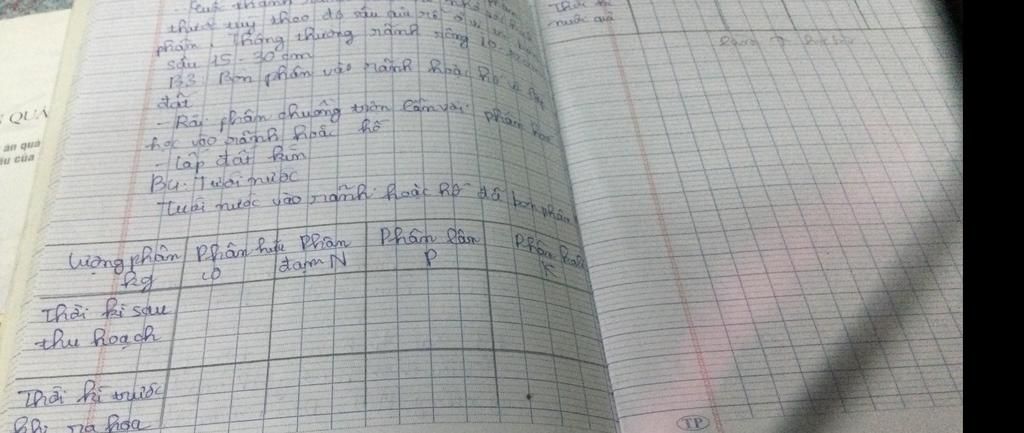 thước tuỳ theo độ sâu của rễ
phân. Thông thường rãnh rộng 10-
sâu 15-30cm
B3 Bón phân vào rãnh hoặc hố và lấp
đất
- Rải phân chuồng trộn lẫn với phân hoá
học vào rãnh hoặc hố
- Lấp đất kín
B4: Tưới nước
Tưới nước vào rãnh hoặc hố đã bón phân
Lượng phân kg
Phân hữu cơ
Phân đạm N
Phân lân P
Phân kali K
Thời kì sau
thu hoạch
Thời kì trước
khi ra hoa
Thời kì
nuôi quả
QUẢ
ăn quả
TP